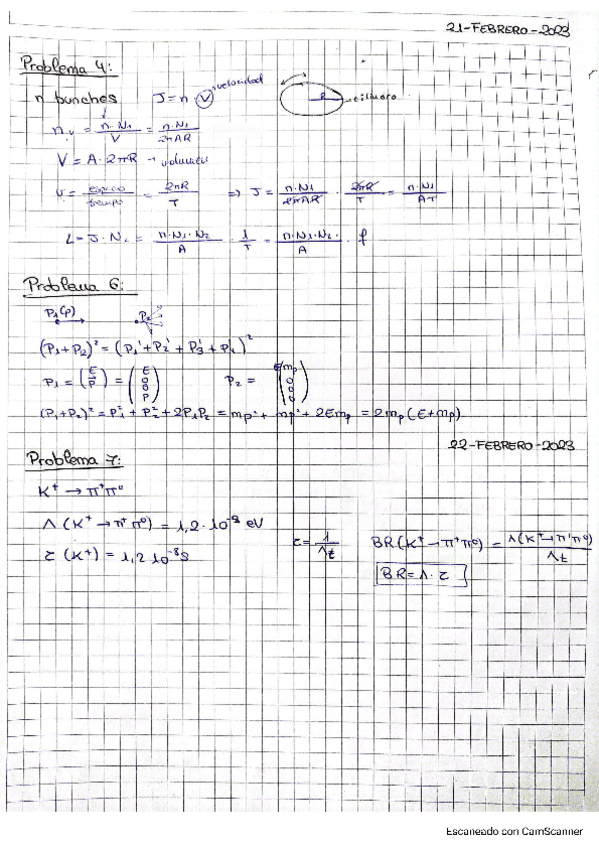 21-FEBRERO-2023
Problema 4:
n bunches J = n·V velocidad R cilindro
n_v = n·N₁/V = n·N₁/2πAR
V = A·2πR → volumen
v = espacio/tiempo = 2πR/T ⇒ J = n·N₁/2πAR · 2πR/T = n·N₁/AT
L = J·N₂ = n·N₁·N₂/A · 1/T = n·N₁·N₂·/A · f
Problema 6:
P₁(p) P₂
(P₁+P₂)² = (P₁'+P₂'+P₃'+P₄')²
P₁ = (E P) = (E 0 0 P) P₂ = (mp 0 0 0)
(P₁+P₂)² = P₁²+P₂²+2P₁P₂ = mp²+mp²+2Emp = 2mp(E+mp)
22-FEBRERO-2023
Problema 7:
K⁺ → π⁺π⁰
Λ(K⁺→π⁺π⁰) = 1,2·10⁻⁸ eV
τ(K⁺) = 1,2·10⁻⁸s τ = 1/Λt BR(K⁺→π⁺π⁰) = Λ(K⁺→π⁺π⁰)/Λt
BR = Λ·τ
Escaneado con CamScanner